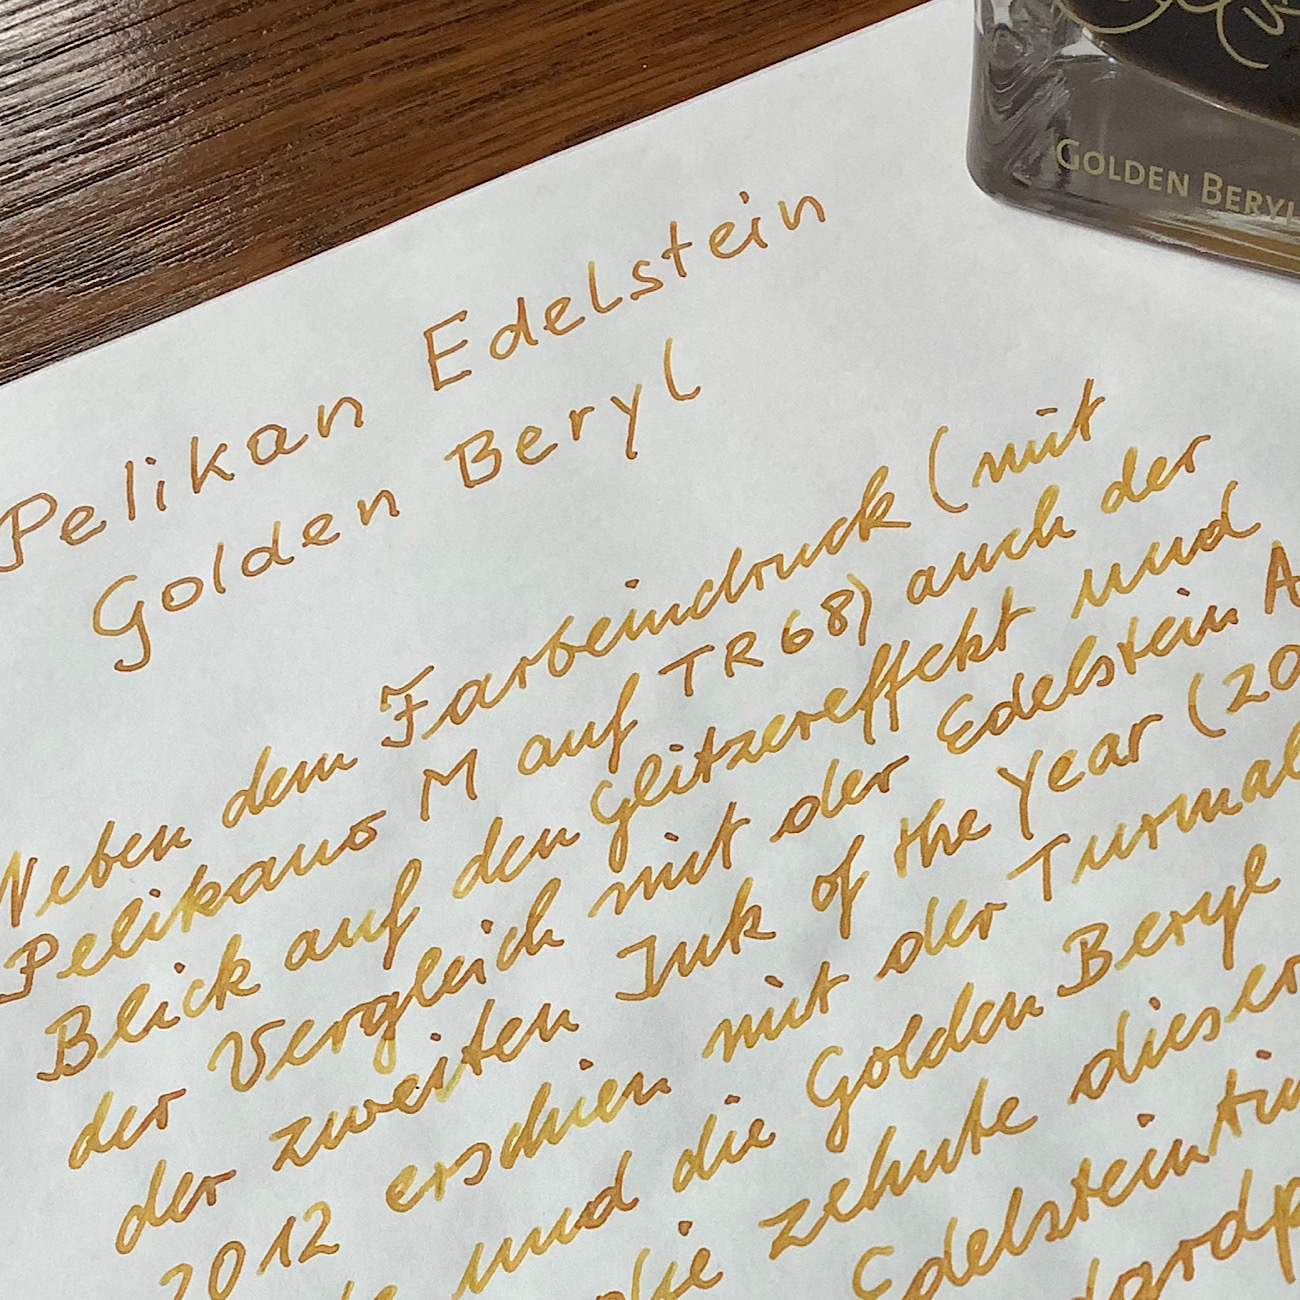 GOLDEN BERYL
Pelikan Edelstein
Golden Beryl
Neben dem Farbeindruck (mit
Pelikano M auf TR68) auch der
Blick auf den Glitzereffekt und
der Vergleich mit der Edelstein A
der zweiten Ink of the Year (20
2012 erschien mit der Turmal
und die Golden Beryl
die zehnte dieser
Edelsteintin